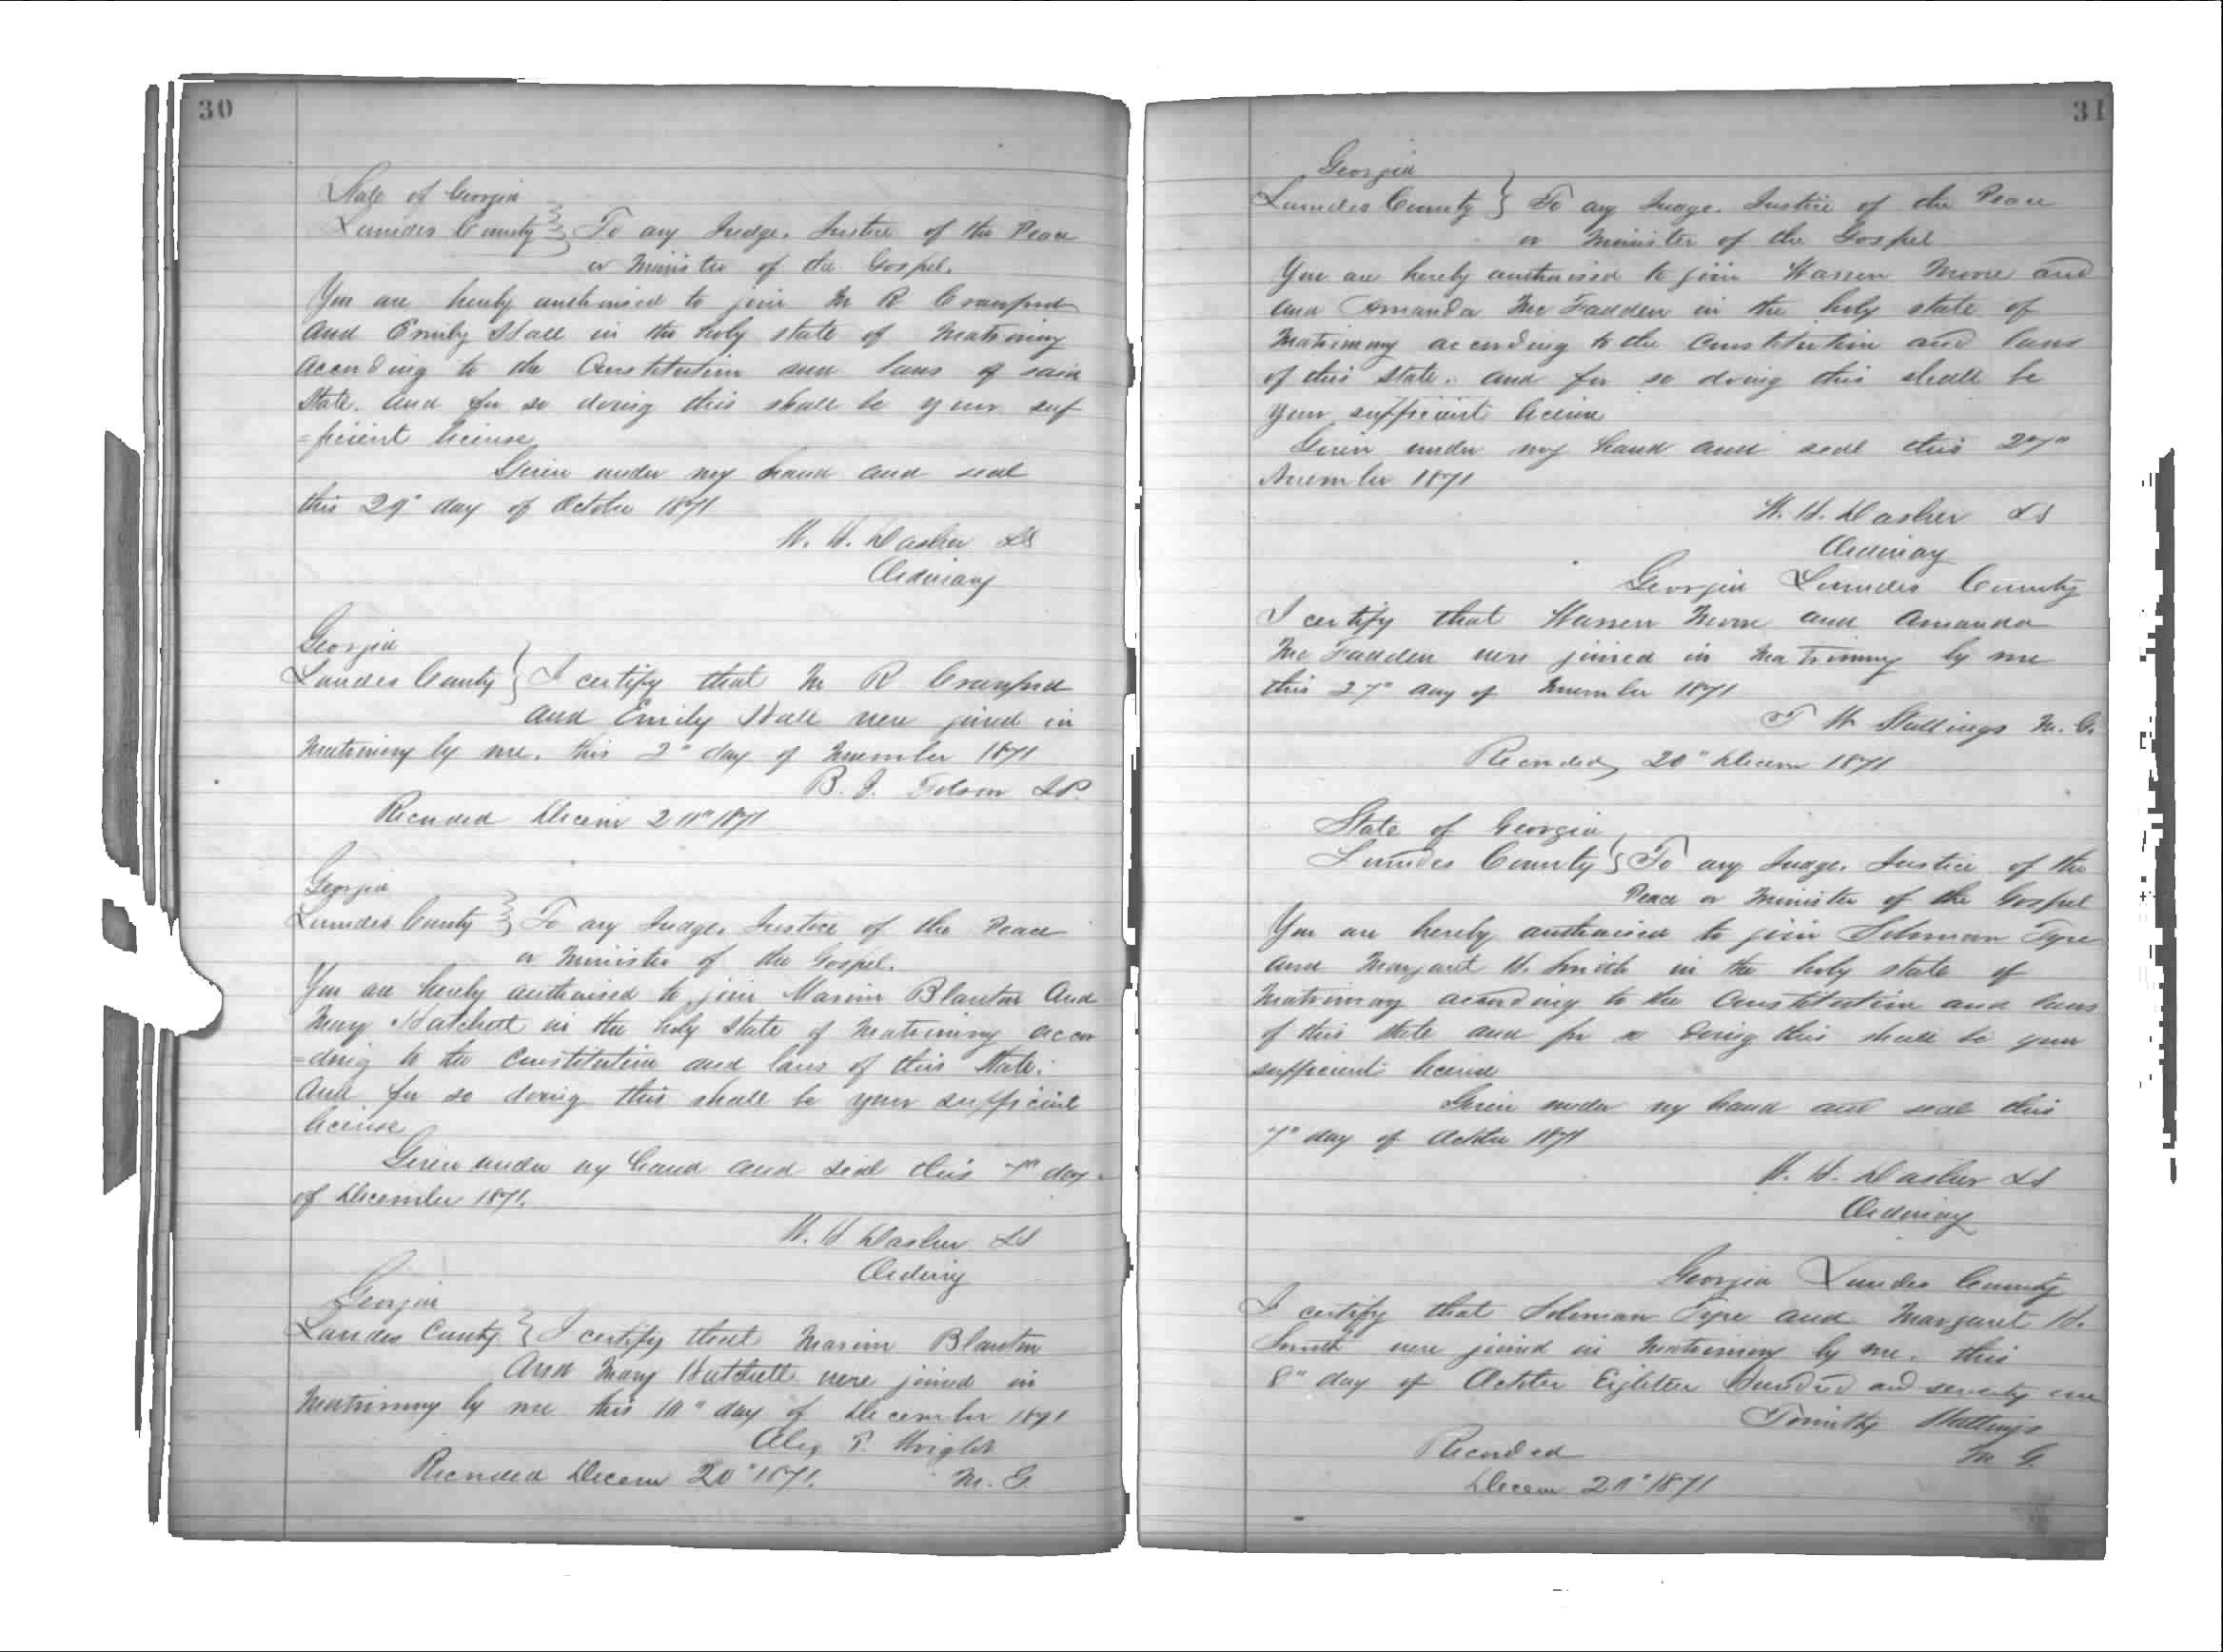 30
State of Georgia
Lowndes County } To any Judge, Justice of the Peace
or Minister of the Gospel.
You are hereby authorised to join M R Crawford
and Emily Hall in the holy state of Matrimony
according to the Constitution and laws of said
State. and for so doing this shall be your suf
=ficient license
Given under my hand and seal
this 29" day of October 1871
H. H. Dasher LS
Ordinary
Georgia
Lowndes County } I certify that M R Crawford
and Emily Hall were joined in
Matrimony by me. this 2" day of November 1871
B. J. Folsom JP.
Recorded Decem 20" 1871
Georgia
Lowndes County } To any Judge, Justice of the Peace
or Minister of the Gospel.
You are hereby authorised to join Marion Blanton and
Mary Hatchett in the holy state of Matrimony accor
=ding to the Constitution and laws of this State.
and for so doing this shall be your sufficient
license
Given under my hand and seal this 7" day
of December 1871.
H. H Dasher LS
Ordinary
Georgia
Lowndes County } I certify that Marion Blanton
and Mary Hatchett were joined in
Matrimony by me this 10" day of December 1871
P. Wright
Recorded Decem 20" 1871. M. G.
31
Georgia
Lowndes County } To any Judge, Justice of the Peace
or Minister of the Gospel
You are hereby authorised to join Warren Moore and
and Amanda McFadden in the holy state of
Matrimony according to the Constitution and laws
of this State. and for so doing this shall be
your sufficient license
Given under my hand and seal this 27"
November 1871
H. H. Dasher LS
Ordinary
Georgia Lowndes County
I certify that Warren Moore and Amanda
McFadden were joined in Matrimony by me
this 27" day of November 1871
T W Stallings M. G.
Recorded 20" Decem 1871
State of Georgia
Lowndes County } To any Judge, Justice of the
Peace or Minister of the Gospel
You are hereby authorised to join Tyre
and Margaret H. Smith in the holy state of
Matrimony according to the Constitution and laws
of this State and for so doing this shall be your
sufficient license
Given under my hand and seal this
7" day of October 1871
H. H. Dasher LS
Ordinary
Georgia Lowndes County
I certify that Tyre and Margaret H.
Smith were joined in Matrimony by me. this
8" day of October Eighteen Hundred and seventy one
Timothy Stallings
Recorded M G.
Decem 20" 1871